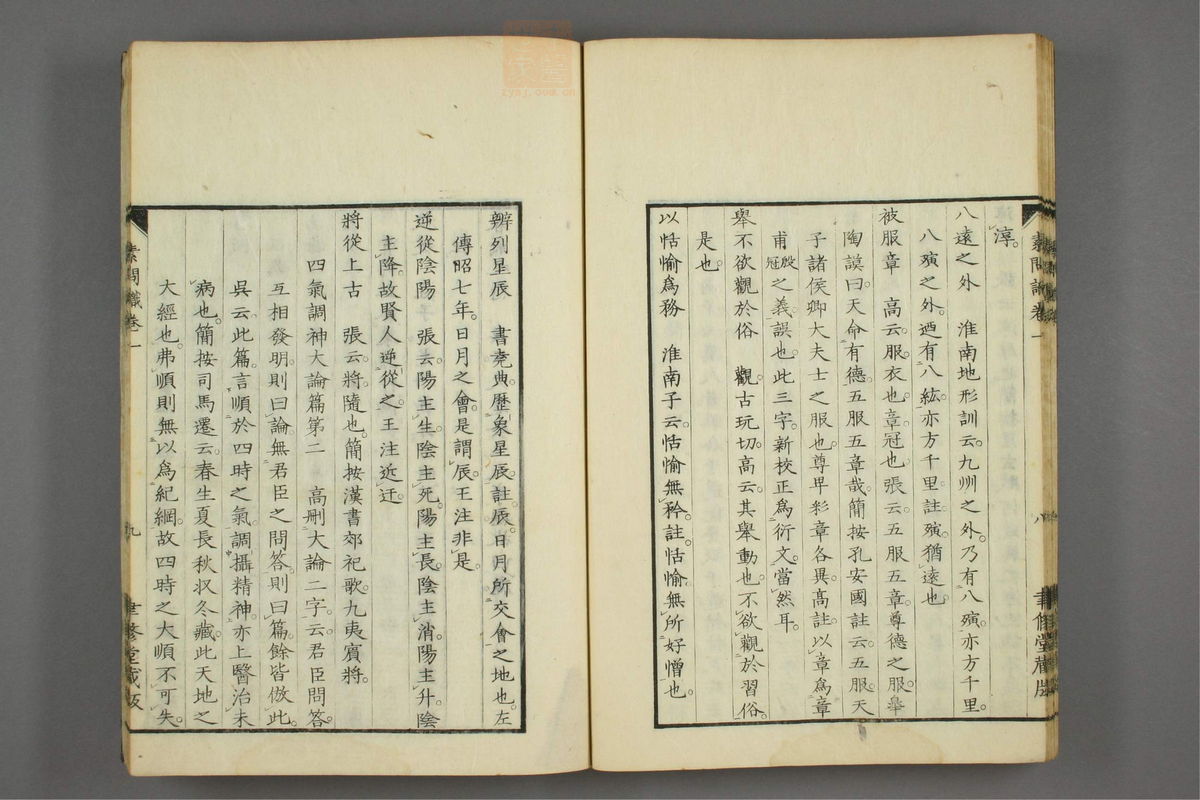 淳。
八遠之外　淮南地形訓云。九州之外。乃有八殥。亦方千里。
八殥之外。迺有八紘。亦方千里。註。殥。猶遠也。
被服章　高云。服。衣也。章。冠也。張云。五服五章。尊德之服。皋
陶謨曰。天命有德。五服五章哉。簡按孔安國註云。五服。天
子諸侯卿大夫士之服也。尊卑彩章各異。高註。以章為章
甫殷冠之義。誤也。此三字。新校正為衍文。當然耳。
舉不欲觀於俗　觀。古玩切。高云。其舉動也。不欲觀於習俗。
是也。
以恬愉為務　淮南子云。恬愉無矜。註。恬愉。無所好憎也。
素問識卷一
八
聿修堂藏版
辨列星辰　書堯典。歷象星辰。註。辰。日月所交會之地也。左
傳昭七年。日月之會。是謂辰。王注非是。
逆從陰陽　張云。陽主生。陰主死。陽主長。陰主消。陽主升。陰
主降。故賢人逆從之。王注近迂。
將從上古　張云。將。隨也。簡按漢書郊祀歌。九夷賓將。
四氣調神大論篇第二　高刪大論二字。云。君臣問答。
互相發明。則曰論。無君臣之問答。則曰篇。餘皆倣此。
吳云。此篇。言順於四時之氣。調攝精神。亦上醫治未
病也。簡按司馬遷云。春生夏長秋收冬藏。此天地之
大經也。弗順則無以為紀綱。故四時之大順。不可失。
素問識卷一
九
聿修堂藏版
zysj.com.cn